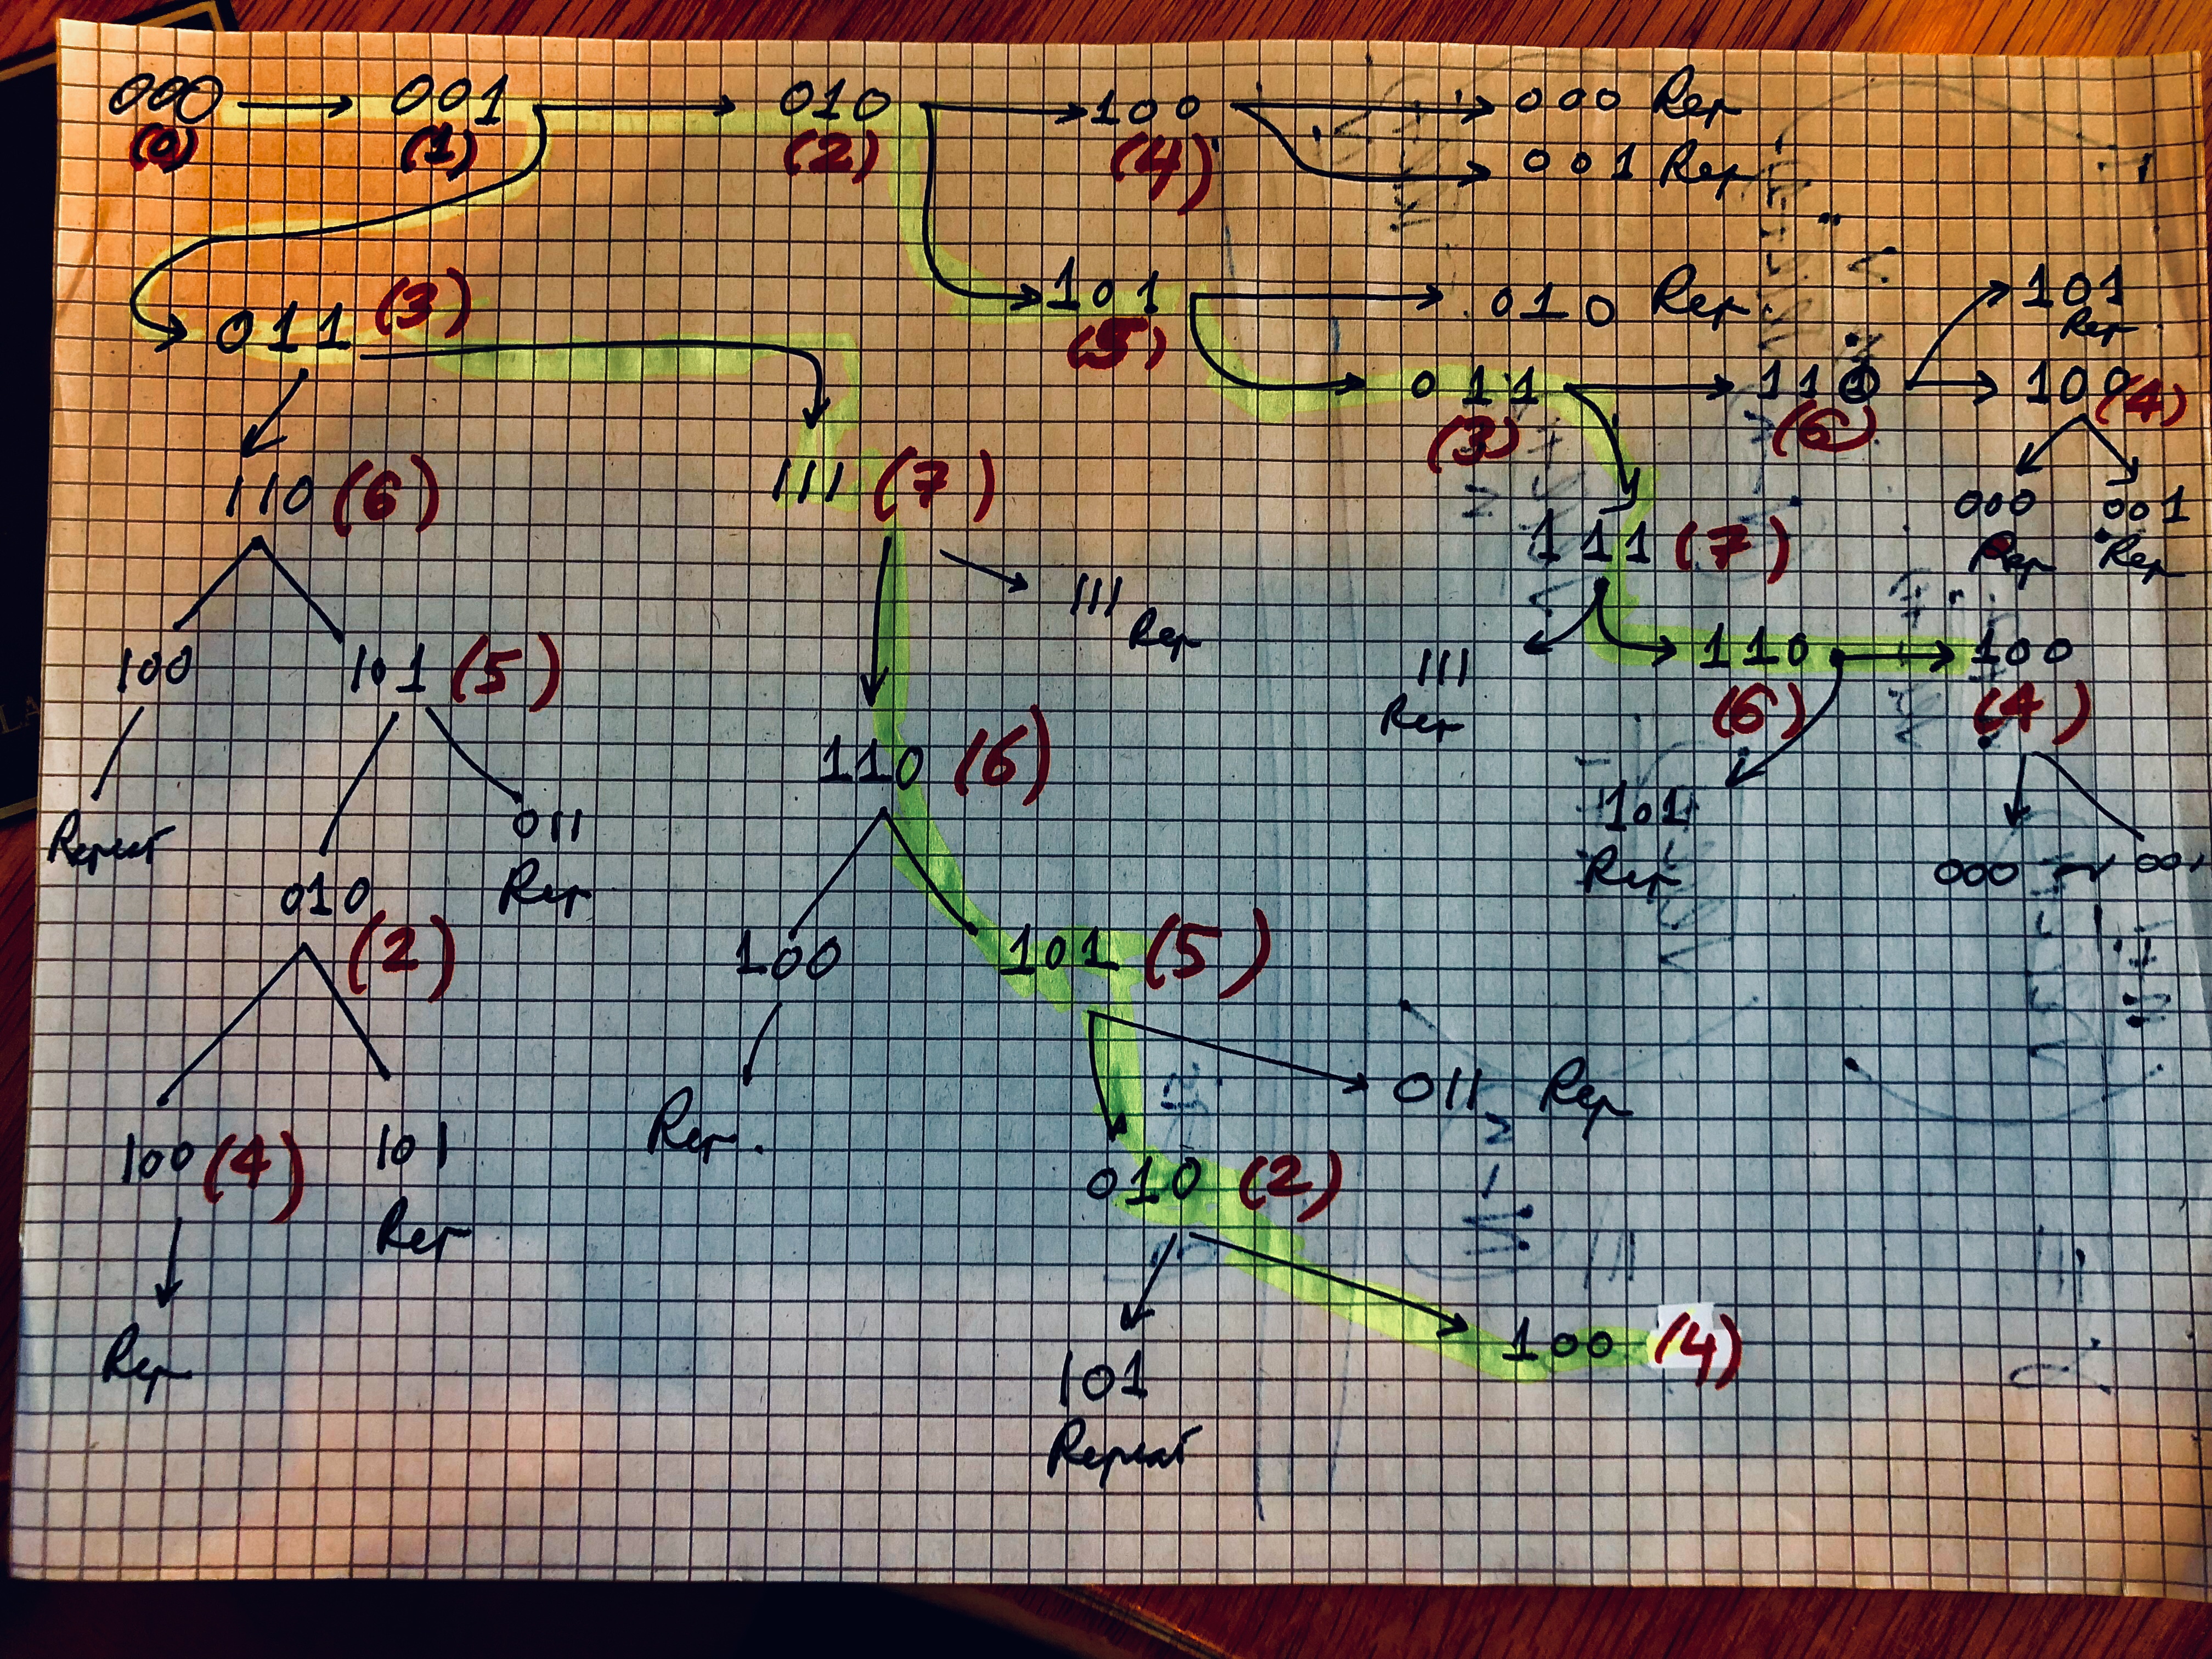 000 → 001 → 010 → 100 → 000 Rep
(0) (1) (2) (4) 001 Rep
011 (3) 101 → 010 Rep 101
(5) Rep
011 → 110 → 100 (4)
(3) (6)
110 (6) 111 (7) 000 001
111 (7) Rep Rep
111
Rep
100 101 (5) 111 110 → 100
Rep (6) (4)
110 (6) 101
Repeat 011 Rep 000 001
010 Rep
(2) 100 101 (5)
Rep. 011 Rep
100 (4) 101 010 (2)
Rep
Rep 101 100 (4)
Repeat